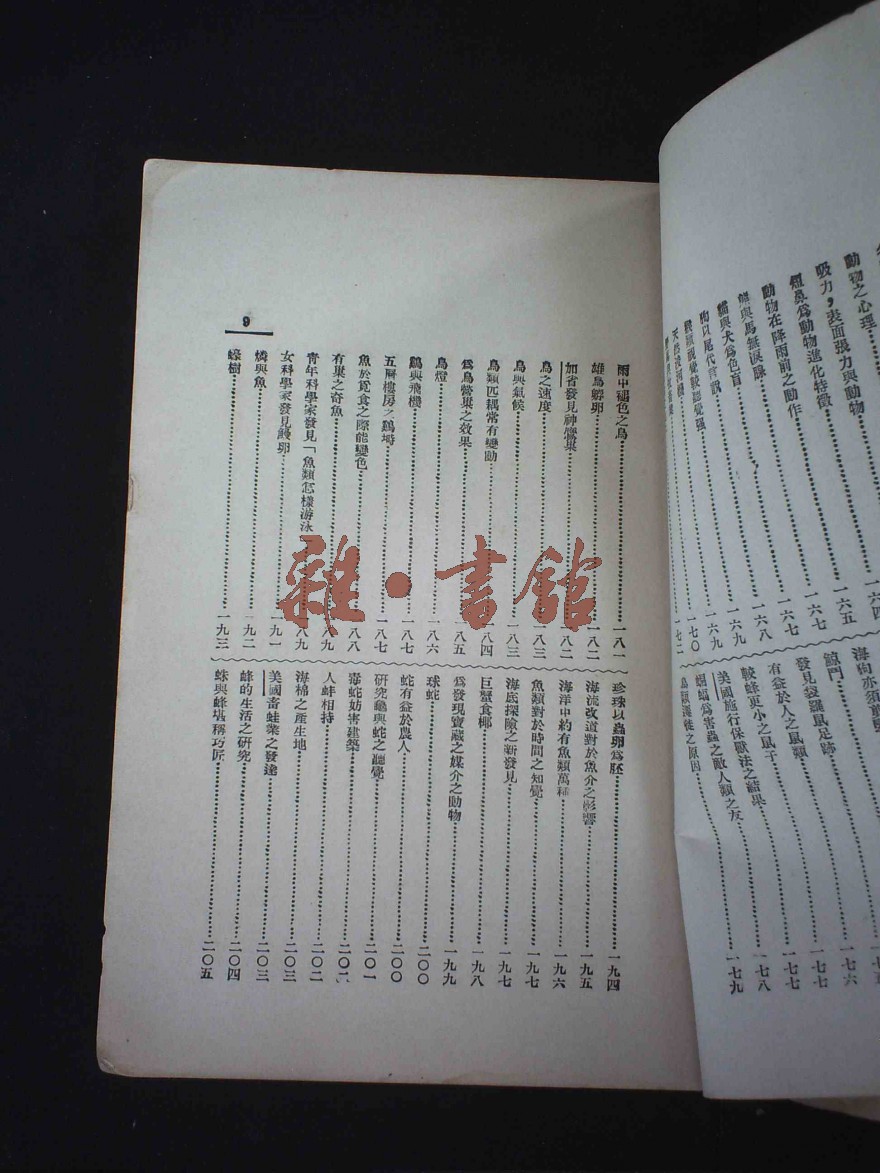 動物之心理 一六四
吸力，表面張力與動物 一六五
短鼻爲動物進化特徵 一六七
動物在降雨前之動作 一六七
熊與馬無淚腺 一六八
貓與犬爲色盲 一六九
狗以尾代言語 一六九
一七〇
一七二
海狗亦須
發見袋羅鼠足跡 一七七
有益於人之鼠類 一七七
較蜂更小之鼠子 一七八
美國施行保獸法之結果 一七九
蝙蝠爲害蟲之敵人類之友
鳥類遷徙之原因
雨中褪色之鳥 一八一
雄鳥孵卵 一八二
加省發見神鷹巢 一八二
鳥之速度 一八三
鳥與氣候 一八三
鳥類匹耦常有變動 一八四
爲鳥營巢之效果 一八五
鳥燈 一八六
鷄與飛機 一八七
五層樓房之鷄塒 一八七
魚於覓食之際能變色 一八八
有巢之奇魚 一八九
青年科學家發見「魚類怎樣游泳 八九
女科學家發見鰻卵 一九一
燐與魚 一九二
蠔樹 一九三
珍珠以蟲卵爲胚 一九四
海流改道對於魚介之影響 一九五
海洋中約有魚類萬種 一九六
魚類對於時間之知覺 一九七
海底探險之新發見 一九七
巨蟹食椰 一九八
爲發現寶藏之媒介之動物 一九九
球蛇 二〇〇
蛇有益於農人 二〇〇
研究龜與蛇之聽覺 二〇一
毒蛇妨害建築 二〇二
人蚌相持 二〇二
海棉之產生地 二〇三
美國畜蛙業之發達 二〇三
蜂的生活之研究 二〇四
蛛與蜂堪稱巧匠 二〇五
9
雜·書館